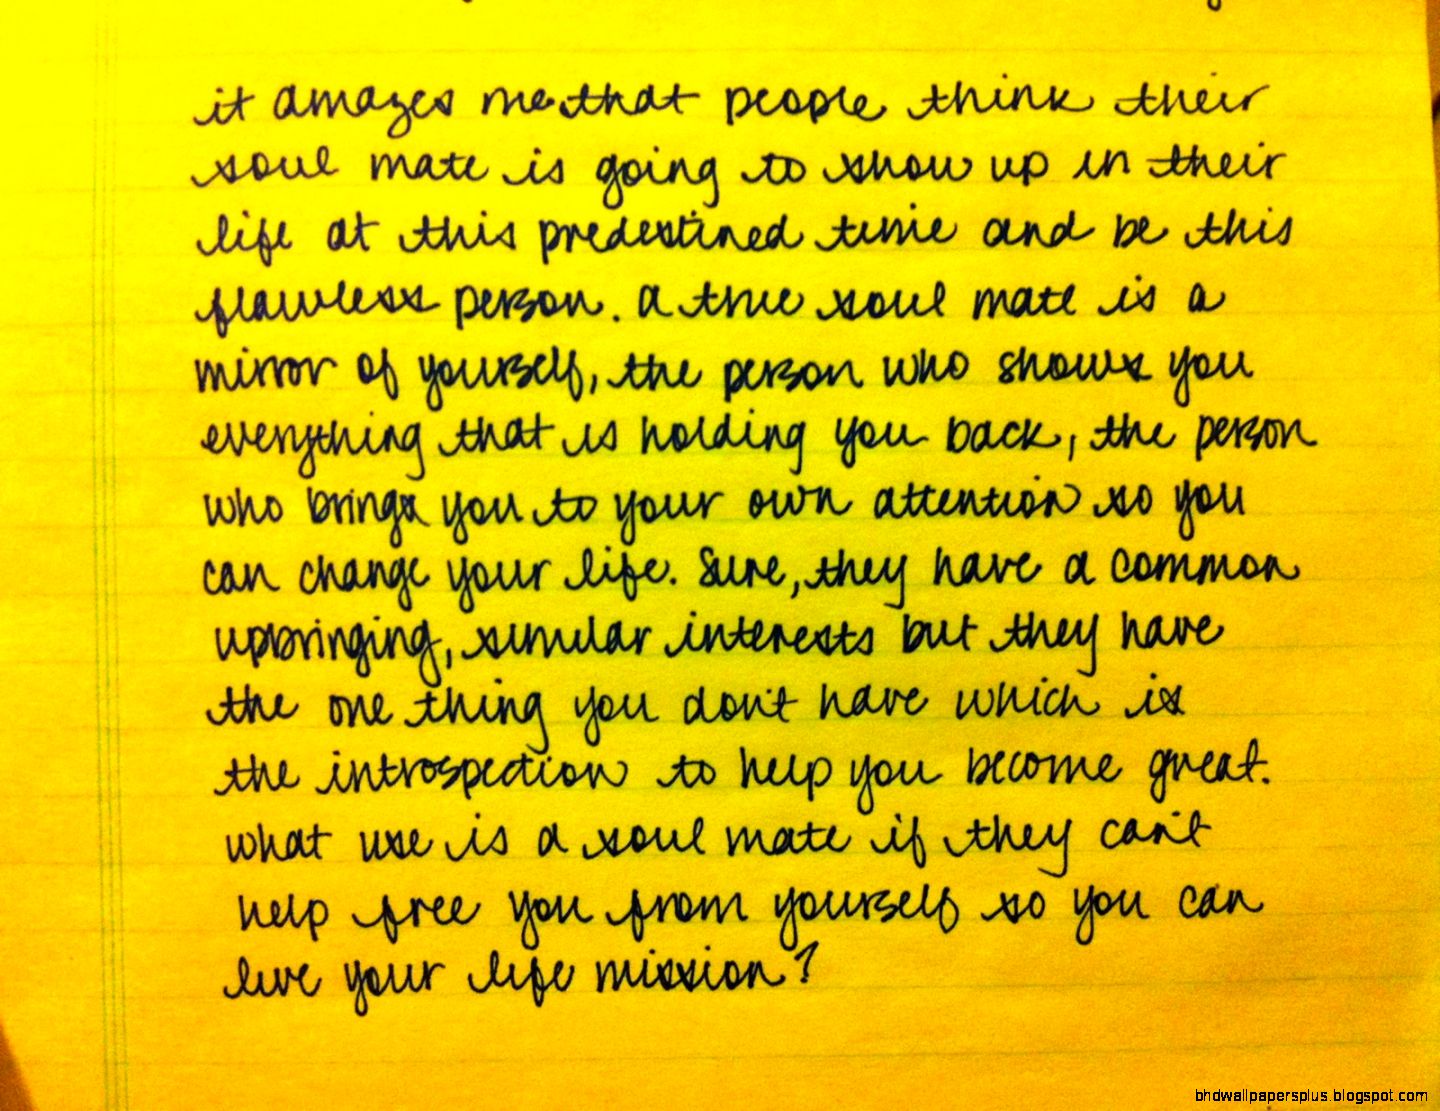 it amazes me that people think their
soul mate is going to show up in their
life at this predestined time and be this
flawless person. a true soul mate is a
mirror of yourself, the person who shows you
everything that is holding you back, the person
who brings you to your own attention so you
can change your life. Sure, they have a common
upbringing, similar interests but they have
the one thing you don't have which is
the introspection to help you become great.
what use is a soul mate if they can't
help free you from yourself so you can
live your life mission?
bhdwallpapersplus.blogspot.com